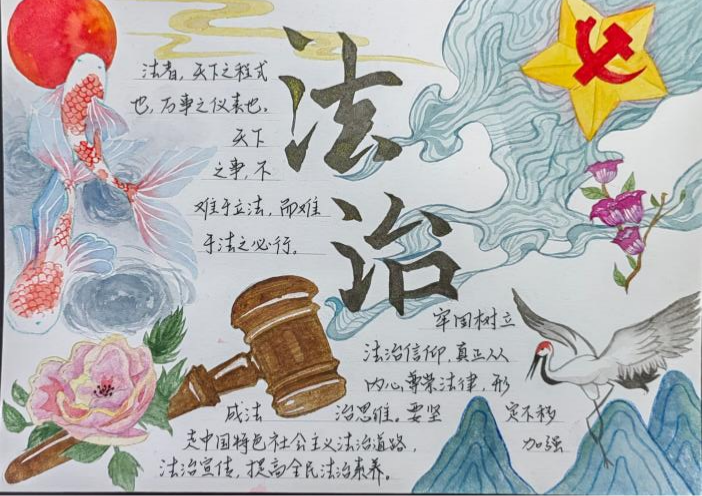 法治
法者，天下之程式
也，万事之仪表也。
天下
之事，不
难于立法，而难
于法之必行。
牢固树立
法治信仰，真正从
内心尊荣法律，形
成法 治思维。要坚 定不移
走中国特色社会主义法治道路， 加强
法治宣传，提高全民法治素养。